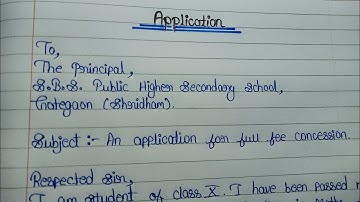 Application
To,
The Principal,
S.B.S. Public Higher Secondary School,
Gotegaon (Shridham).
Subject :- An application for full fee concession.
Respected Sir,
I am student of class X. I have been passed